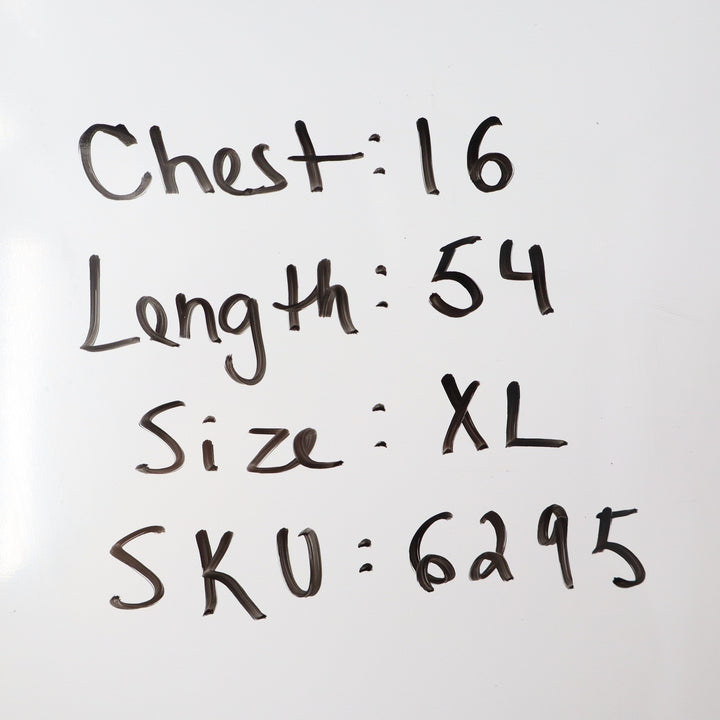 Chest: 16
Length: 54
Size: XL
SKU: 6295